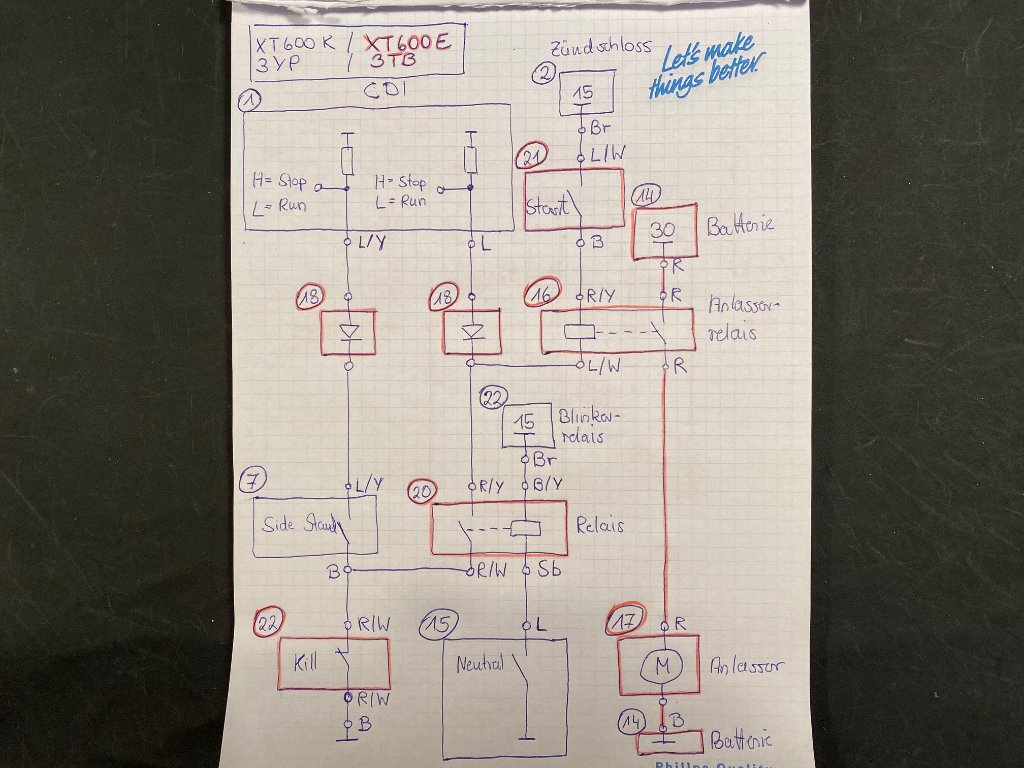 XT600K / XT600E
3YP / 3TB
Zündschloss
Let's make
things better.
2
15
CDI
1
Br
L/W
21
H= Stop
L= Run
H= Stop
L= Run
Start
14
30
Batterie
L/Y
L
B
R
18
18
16
R/Y
R
Anlasser-
relais
L/W
R
22
15
Blinker-
relais
Br
7
L/Y
20
R/Y
B/Y
Side Stand
Relais
B
R/W
Sb
22
R/W
15
L
17
R
Kill
Neutral
M
Anlasser
R/W
B
14
B
Batterie
Philips Quality